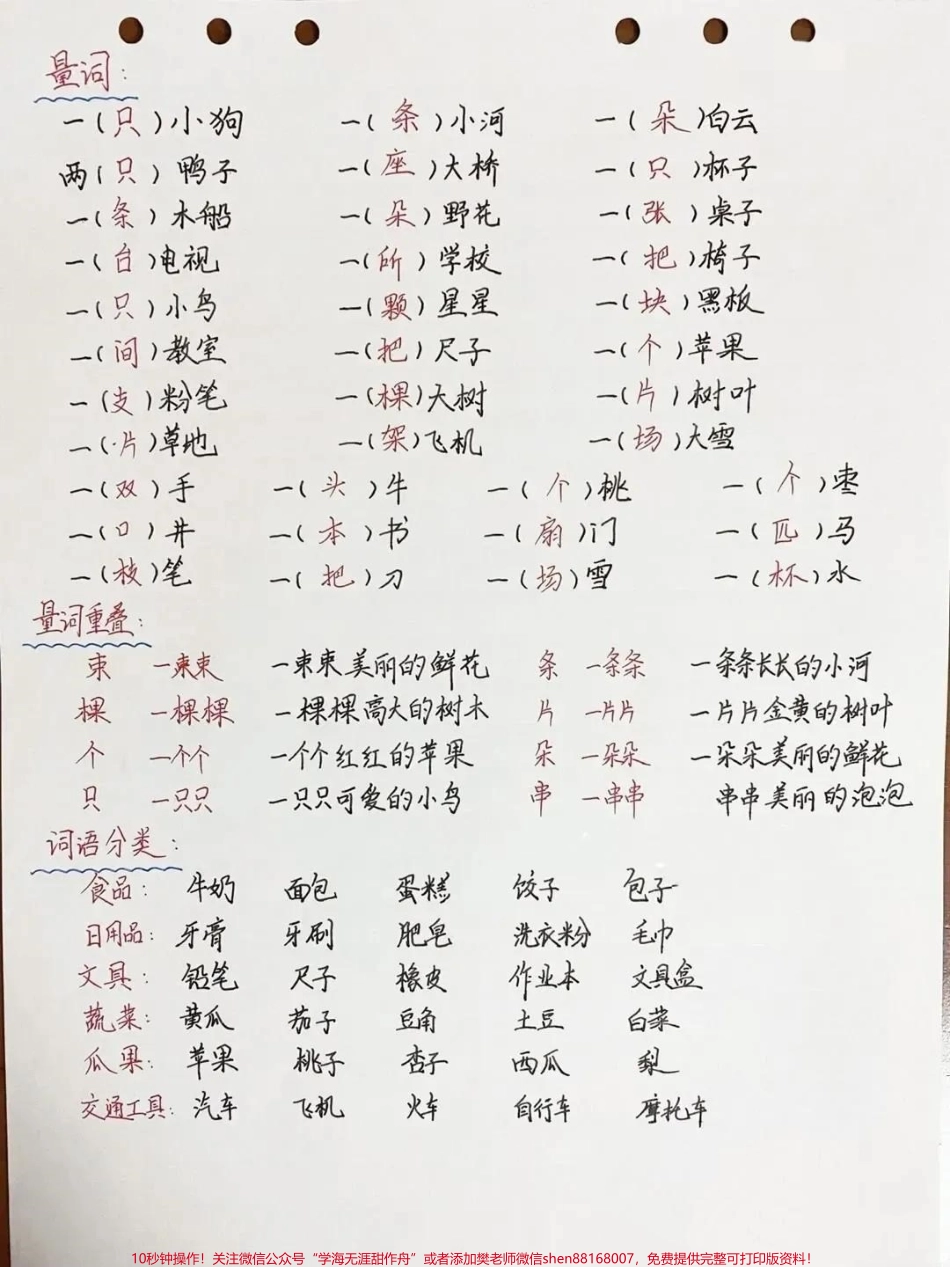 量词：
一（只）小狗 一（条）小河 一（朵）白云
两（只）鸭子 一（座）大桥 一（只）杯子
一（条）木船 一（朵）野花 一（张）桌子
一（台）电视 一（所）学校 一（把）椅子
一（只）小鸟 一（颗）星星 一（块）黑板
一（间）教室 一（把）尺子 一（个）苹果
一（支）粉笔 一（棵）大树 一（片）树叶
一（片）草地 一（架）飞机 一（场）大雪
一（双）手 一（头）牛 一（个）桃 一（个）枣
一（口）井 一（本）书 一（扇）门 一（匹）马
一（枝）笔 一（把）刀 一（场）雪 一（杯）水
量词重叠：
束 一束束 一束束美丽的鲜花 条 一条条 一条条长长的小河
棵 一棵棵 一棵棵高大的树木 片 一片片 一片片金黄的树叶
个 一个个 一个个红红的苹果 朵 一朵朵 一朵朵美丽的鲜花
只 一只只 一只只可爱的小鸟 串 一串串 串串美丽的泡泡
词语分类：
食品： 牛奶 面包 蛋糕 饺子 包子
日用品： 牙膏 牙刷 肥皂 洗衣粉 毛巾
文具： 铅笔 尺子 橡皮 作业本 文具盒
蔬菜： 黄瓜 茄子 豆角 土豆 白菜
瓜果： 苹果 桃子 杏子 西瓜 梨
交通工具： 汽车 飞机 火车 自行车 摩托车
10秒钟操作！关注微信公众号“学海无涯甜作舟”或者添加樊老师微信shen88168007，免费提供完整可打印版资料！